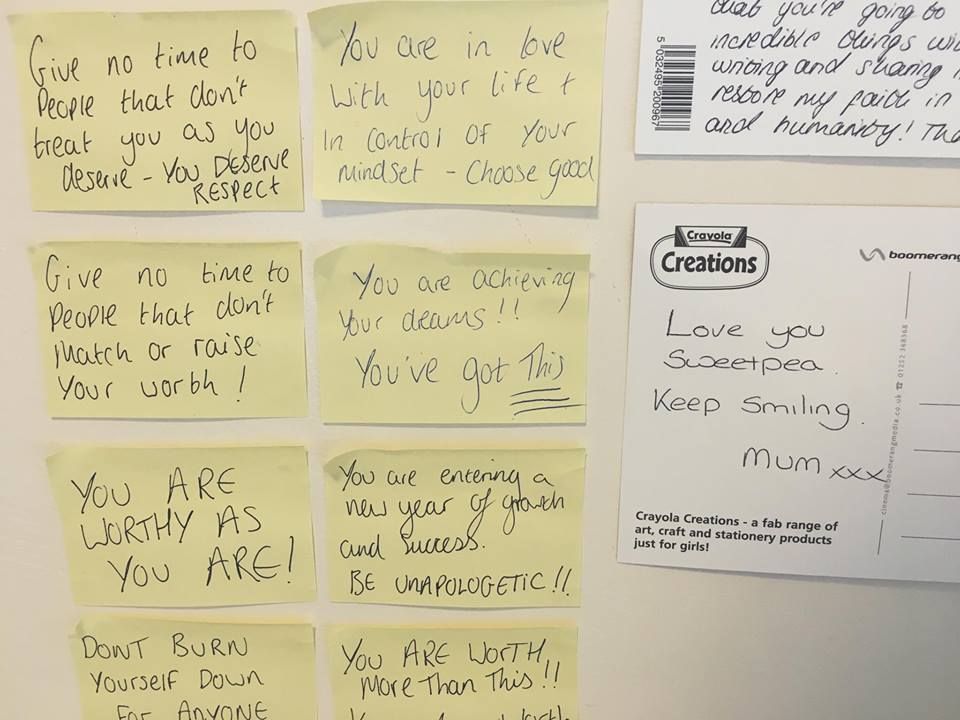 Give no time to
People that don't
treat you as you
deserve - You DESERVE
RESPECT
You are in love
With your life +
In control of your
mindset - Choose good
Give no time to
People that don't
Match or raise
Your worth!
You are achieving
Your dreams!!
You've got This
YOU ARE
WORTHY AS
YOU ARE!
You are entering a
new year of growth
and success.
BE UNAPOLOGETIC!!
DONT BURN
Yourself DOWN
FOR ANYONE
YOU ARE WORTH
More Than This!!
that you're going to
incredible things
writing and sharing
restore my faith in
and humanity!
5 032495 200967
Crayola
Creations
boomerang
Love you
Sweetpea.
Keep Smiling.
Mum xxx
cinema@boomerangmedia.co.uk ☎ 01252 368368
Crayola Creations - a fab range of
art, craft and stationery products
just for girls!